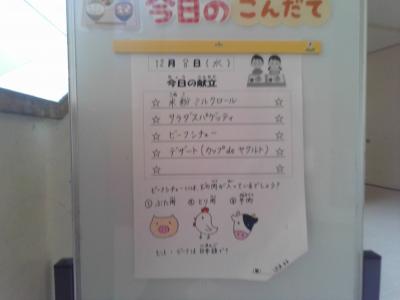 今日のこんだて
12月8日(水)
今日の献立
☆ 米粉ミルクロール ☆
☆ サラダスパゲッティ ☆
☆ ビーフシチュー ☆
☆ デザート(カップdeヤクルト) ☆
☆ ☆
ビーフシチューには、どの肉が入っているでしょう?
①ぶた肉 ②とり肉 ③牛肉
ヒント:ビーフは日本語で?